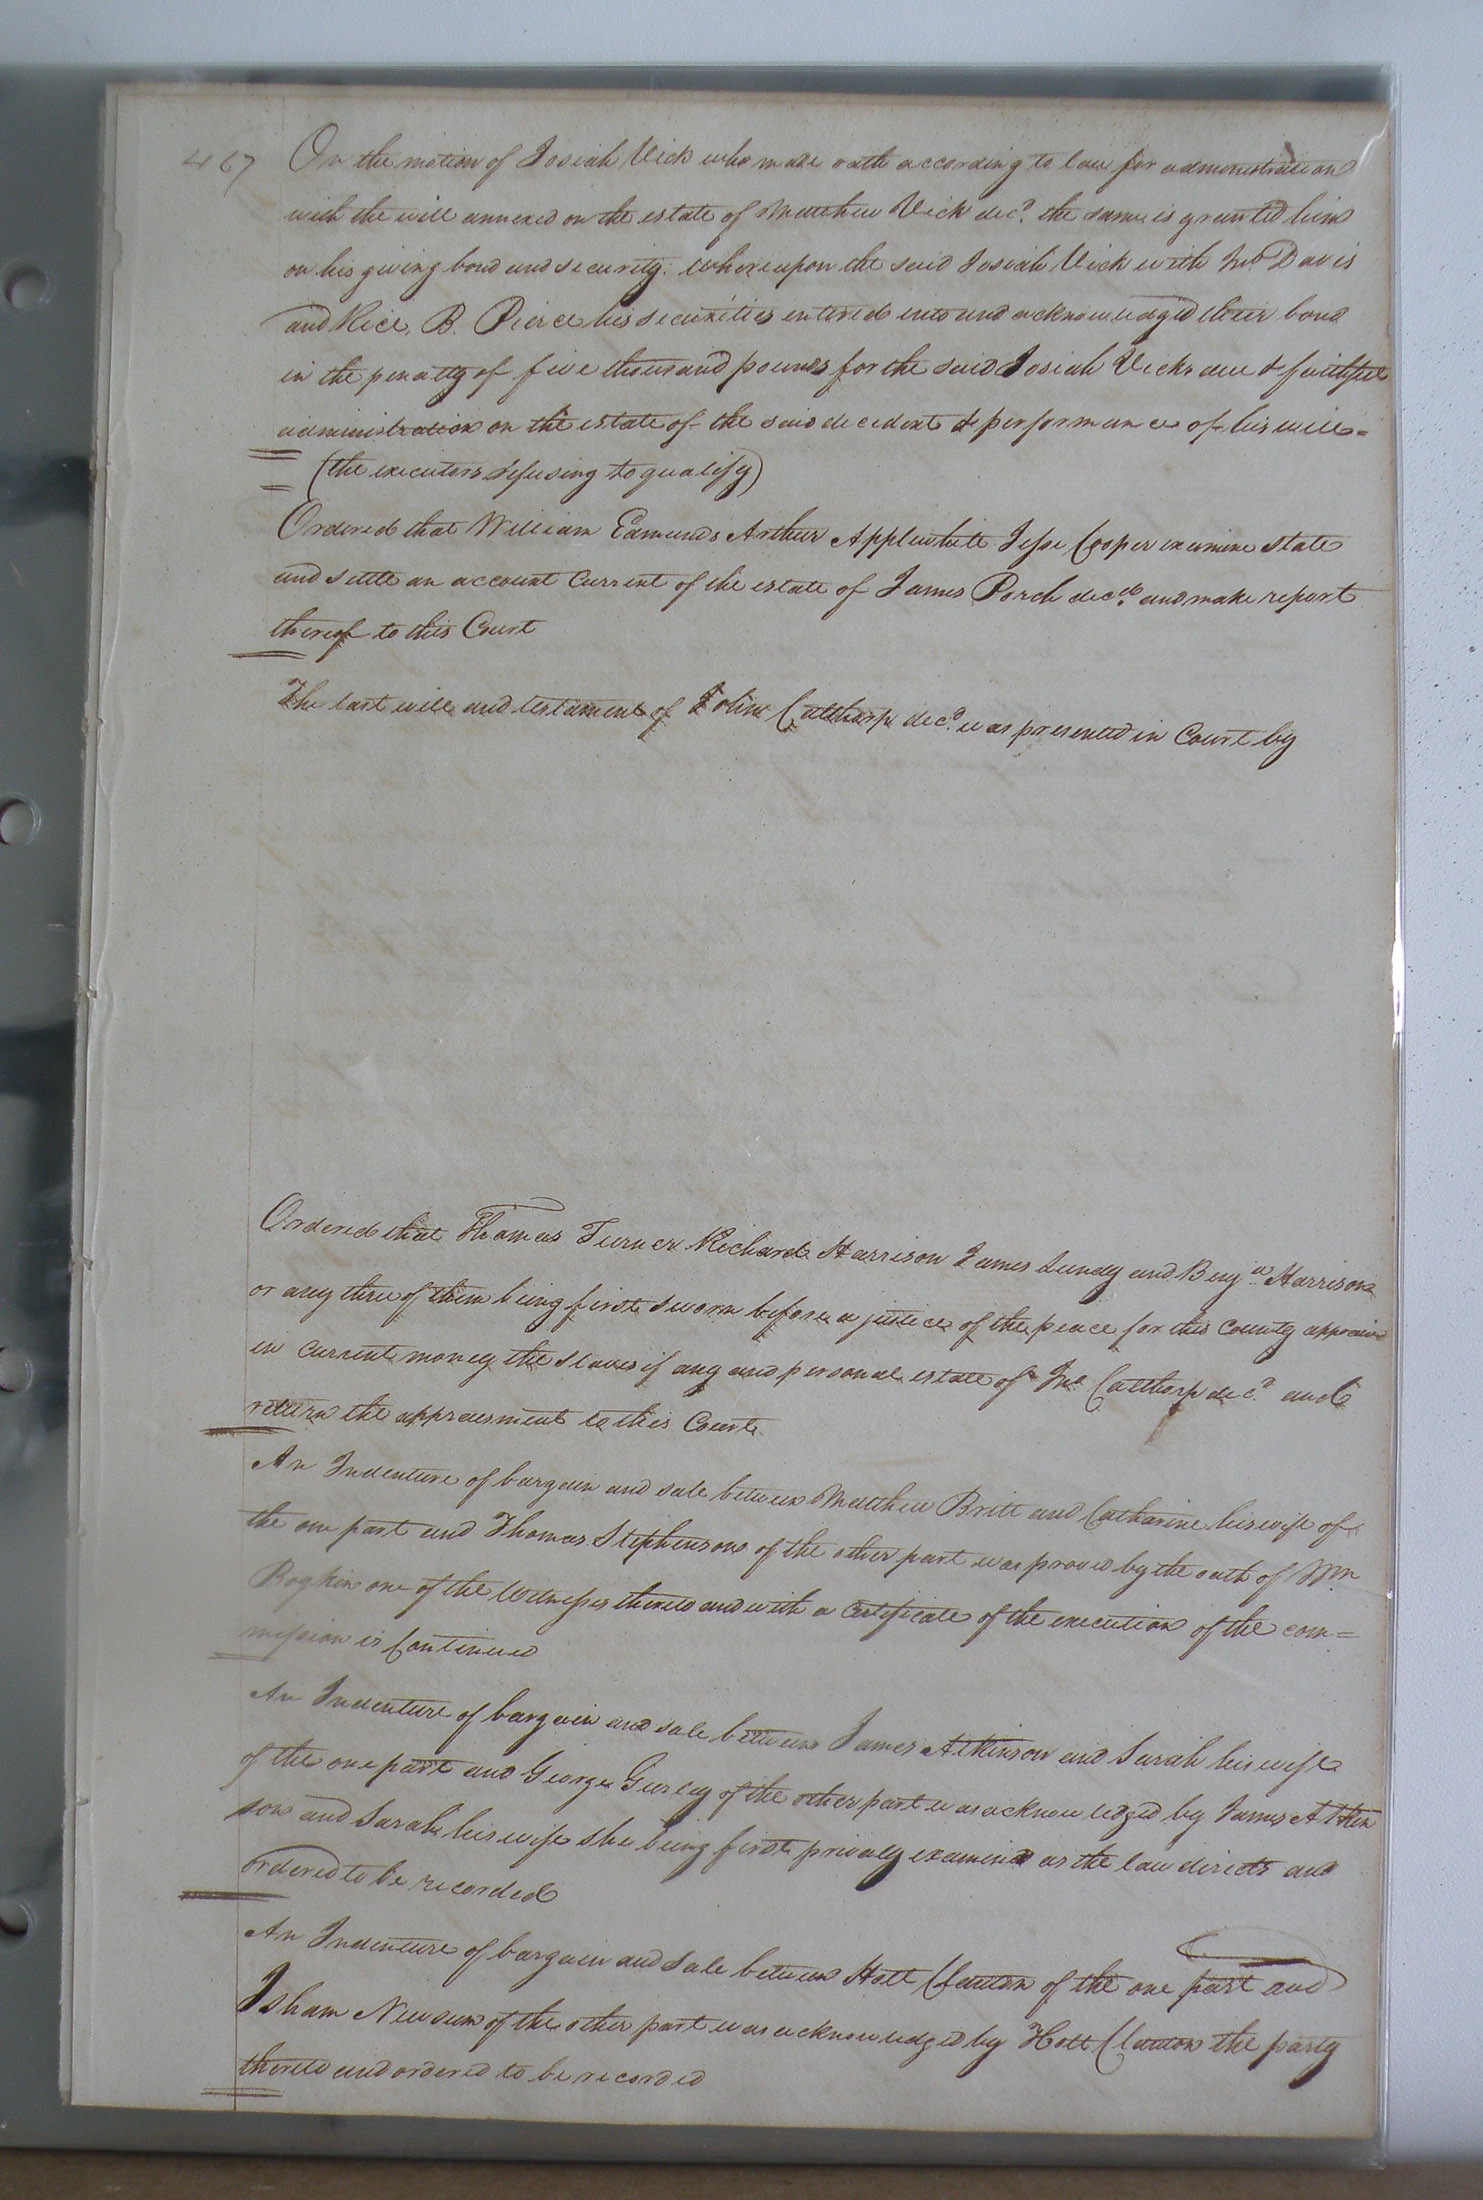 467
On the motion of Josiah Vick who made oath according to law for administration
with the will annexed on the estate of Matthew Vick decd. the same is granted him
on his giving bond and security. whereupon the said Josiah Vick with Jno Davis
and Rice B. Pierce his securities entered into and acknowledged their bond
in the penalty of five thousand pounds for the said Josiah Vicks due & faithful
administration on the estate of the said decedent & performance of his will =
(the executors refusing to qualify)
Ordered that William Edmunds Arthur Applewhite Jesse Cooper examine state
and settle an account Current of the estate of James Porch decd. and make report
thereof to this Court
The last will and testament of John Calthorp decd. was presented in Court by
Ordered that Thomas Turner Richard Harrison James Lundy and Benja. Harrison
or any three of them being first sworn before a justice of the peace for this County appraise
in current money the slaves if any and personal estate of Jno. Calthorp decd. and
return the appraisment to this Court.
An Indenture of bargain and sale between Matthew Britt and Catharine his wife of
the one part and Thomas Stephenson of the other part was proved by the oath of Wm
Boykin one of the Witnesses thereto and with a Certificate of the execution of the com=
mission is Continued
An Indenture of bargain and sale between James Atkinson and Sarah his wife
of the one part and George Gurley of the other part was acknowledged by James Atkin
son and Sarah his wife she being first privaly examined as the law directs and
ordered to be recorded
An Indenture of bargain and sale between Holt Clanton of the one part and
Isham Newsum of the other part was acknowledged by Holt Clanton the party
thereto and ordered to be recorded